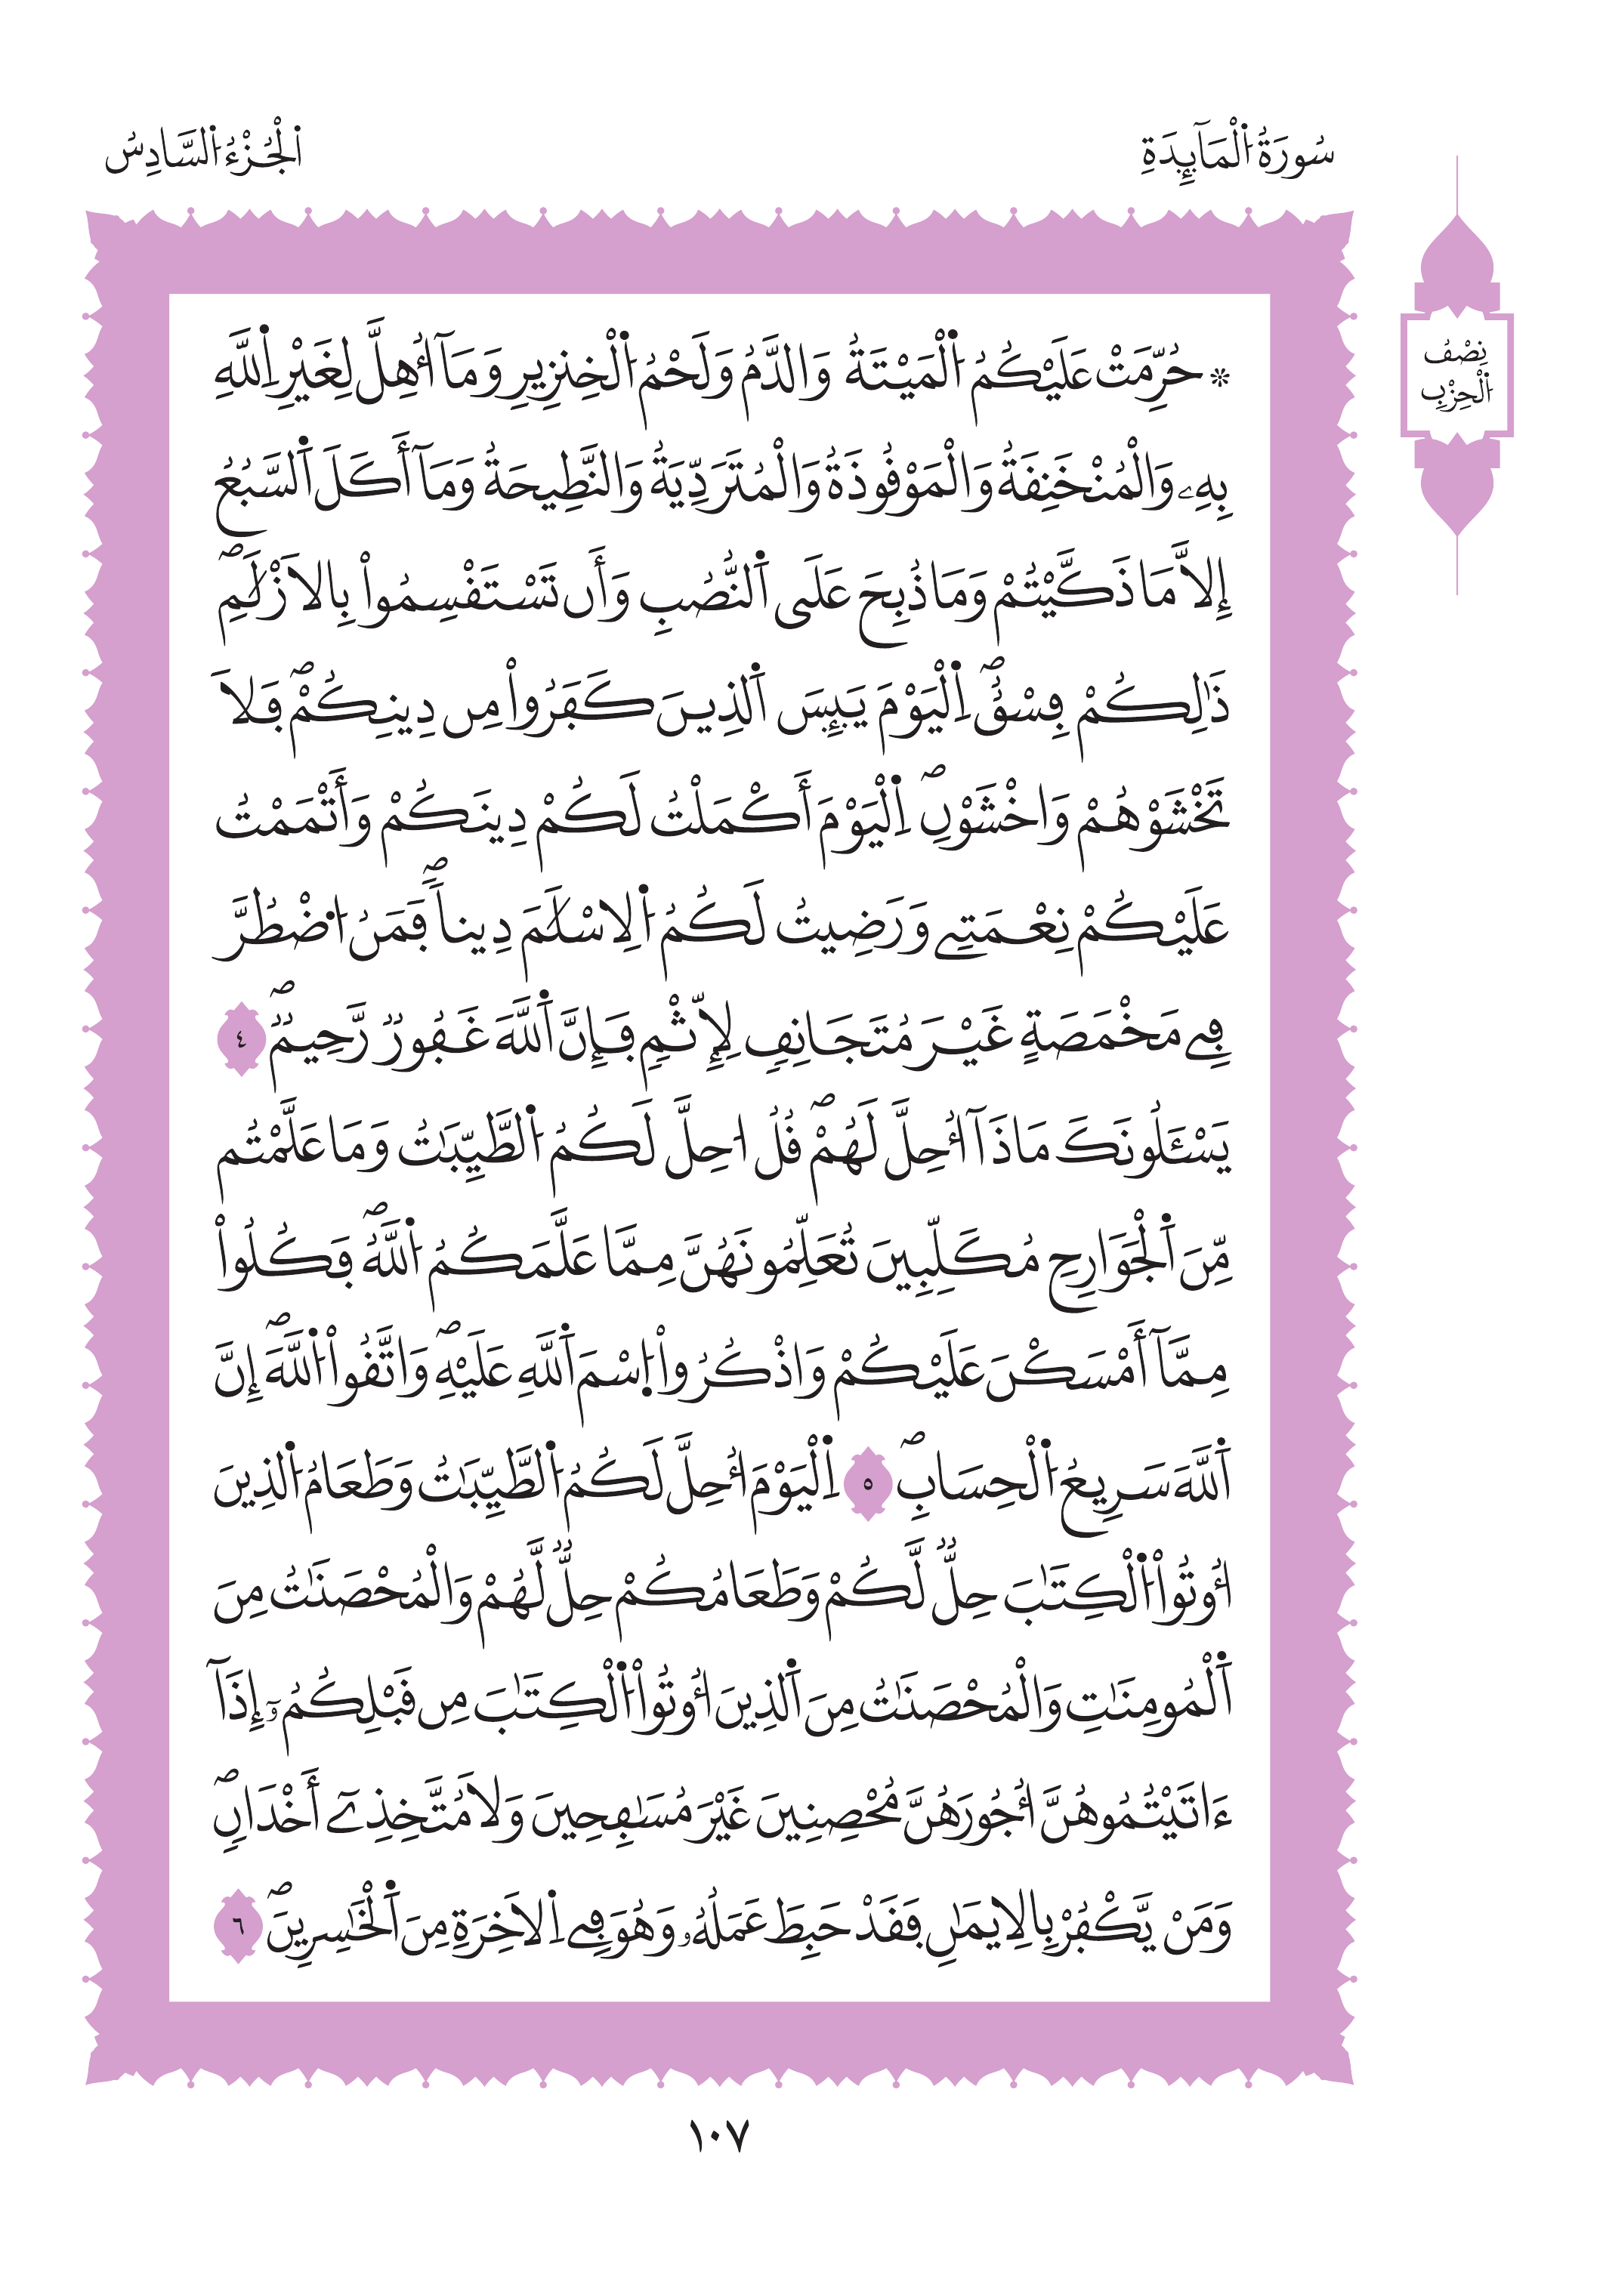 سُورَةُ اُ۬لْمَآئِدَةِ
اَ۬لْجُزْءُ اُ۬لسَّادِسُ
نِصْفُ
اُ۬لْحِزْبِ
* حُرِّمَتْ عَلَيْكُمُ اُ۬لْمَيْتَةُ وَالدَّمُ وَلَحْمُ اُ۬لْخِنزِيرِ وَمَآ أُهِلَّ لِغَيْرِ اِ۬للَّهِ
بِهِۦ وَالْمُنْخَنِقَةُ وَالْمَوْقُوذَةُ وَالْمُتَرَدِّيَةُ وَالنَّطِيحَةُ وَمَآ أَكَلَ اَ۬لسَّبُعُ
إِلاَّ مَا ذَكَّيْتُمْ وَمَا ذُبِحَ عَلَى اَ۬لنُّصُبِ وَأَن تَسْتَقْسِمُواْ بِالَازْلَٰمِۖ
ذَٰلِكُمْ فِسْقٌۖ اِ۬لْيَوْمَ يَئِسَ اَ۬لذِينَ كَفَرُواْ مِن دِينِكُمْۖ فَلاَ
تَخْشَوْهُمْ وَاخْشَوْنِۖ اِ۬لْيَوْمَ أَكْمَلْتُ لَكُمْ دِينَكُمْ وَأَتْمَمْتُ
عَلَيْكُمْ نِعْمَتِے وَرَضِيتُ لَكُمُ اُ۬لِاسْلَٰمَ دِيناٗۖ فَمَنُ اُ۟ضْطُرَّ
فِے مَخْمَصَةٍ غَيْرَ مُتَجَانِفٖ لِّإِثْمٖ فَإِنَّ اَ۬للَّهَ غَفُورٞ رَّحِيمٞۖ ٤
يَسْـَٔلُونَكَ مَاذَآ أُحِلَّ لَهُمْۖ قُلُ ا۟حِلَّ لَكُمُ اُ۬لطَّيِّبَٰتُ وَمَا عَلَّمْتُم
مِّنَ اَ۬لْجَوَارِحِ مُكَلِّبِينَ تُعَلِّمُونَهُنَّ مِمَّا عَلَّمَكُمُ اُ۬للَّهُۖ فَكُلُواْ
مِمَّآ أَمْسَكْنَ عَلَيْكُمْ وَاذْكُرُواْ اُ۪سْمَ اَ۬للَّهِ عَلَيْهِۖ وَاتَّقُواْ اُ۬للَّهَۖ إِنَّ
اَ۬للَّهَ سَرِيعُ اُ۬لْحِسَابِۖ ٥ اِ۬لْيَوْمَ أُحِلَّ لَكُمُ اُ۬لطَّيِّبَٰتُ وَطَعَامُ اُ۬لذِينَ
أُوتُواْ اُ۬لْكِتَٰبَ حِلّٞ لَّكُمْ وَطَعَامُكُمْ حِلّٞ لَّهُمْ وَالْمُحْصَنَٰتُ مِنَ
اَ۬لْمُومِنَٰتِ وَالْمُحْصَنَٰتُ مِنَ اَ۬لذِينَ أُوتُواْ اُ۬لْكِتَٰبَ مِن قَبْلِكُمُۥٓ إِذَآ
ءَاتَيْتُمُوهُنَّ أُجُورَهُنَّ مُحْصِنِينَ غَيْرَ مُسَٰفِحِينَ وَلَا مُتَّخِذِےٓ أَخْدَانٖۖ
وَمَنْ يَّكْفُرْ بِالِايمَٰنِ فَقَدْ حَبِطَ عَمَلُهُۥ وَهُوَ فِے اِ۬لَاخِرَةِ مِنَ اَ۬لْخَٰسِرِينَۖ ٦
١٠٧